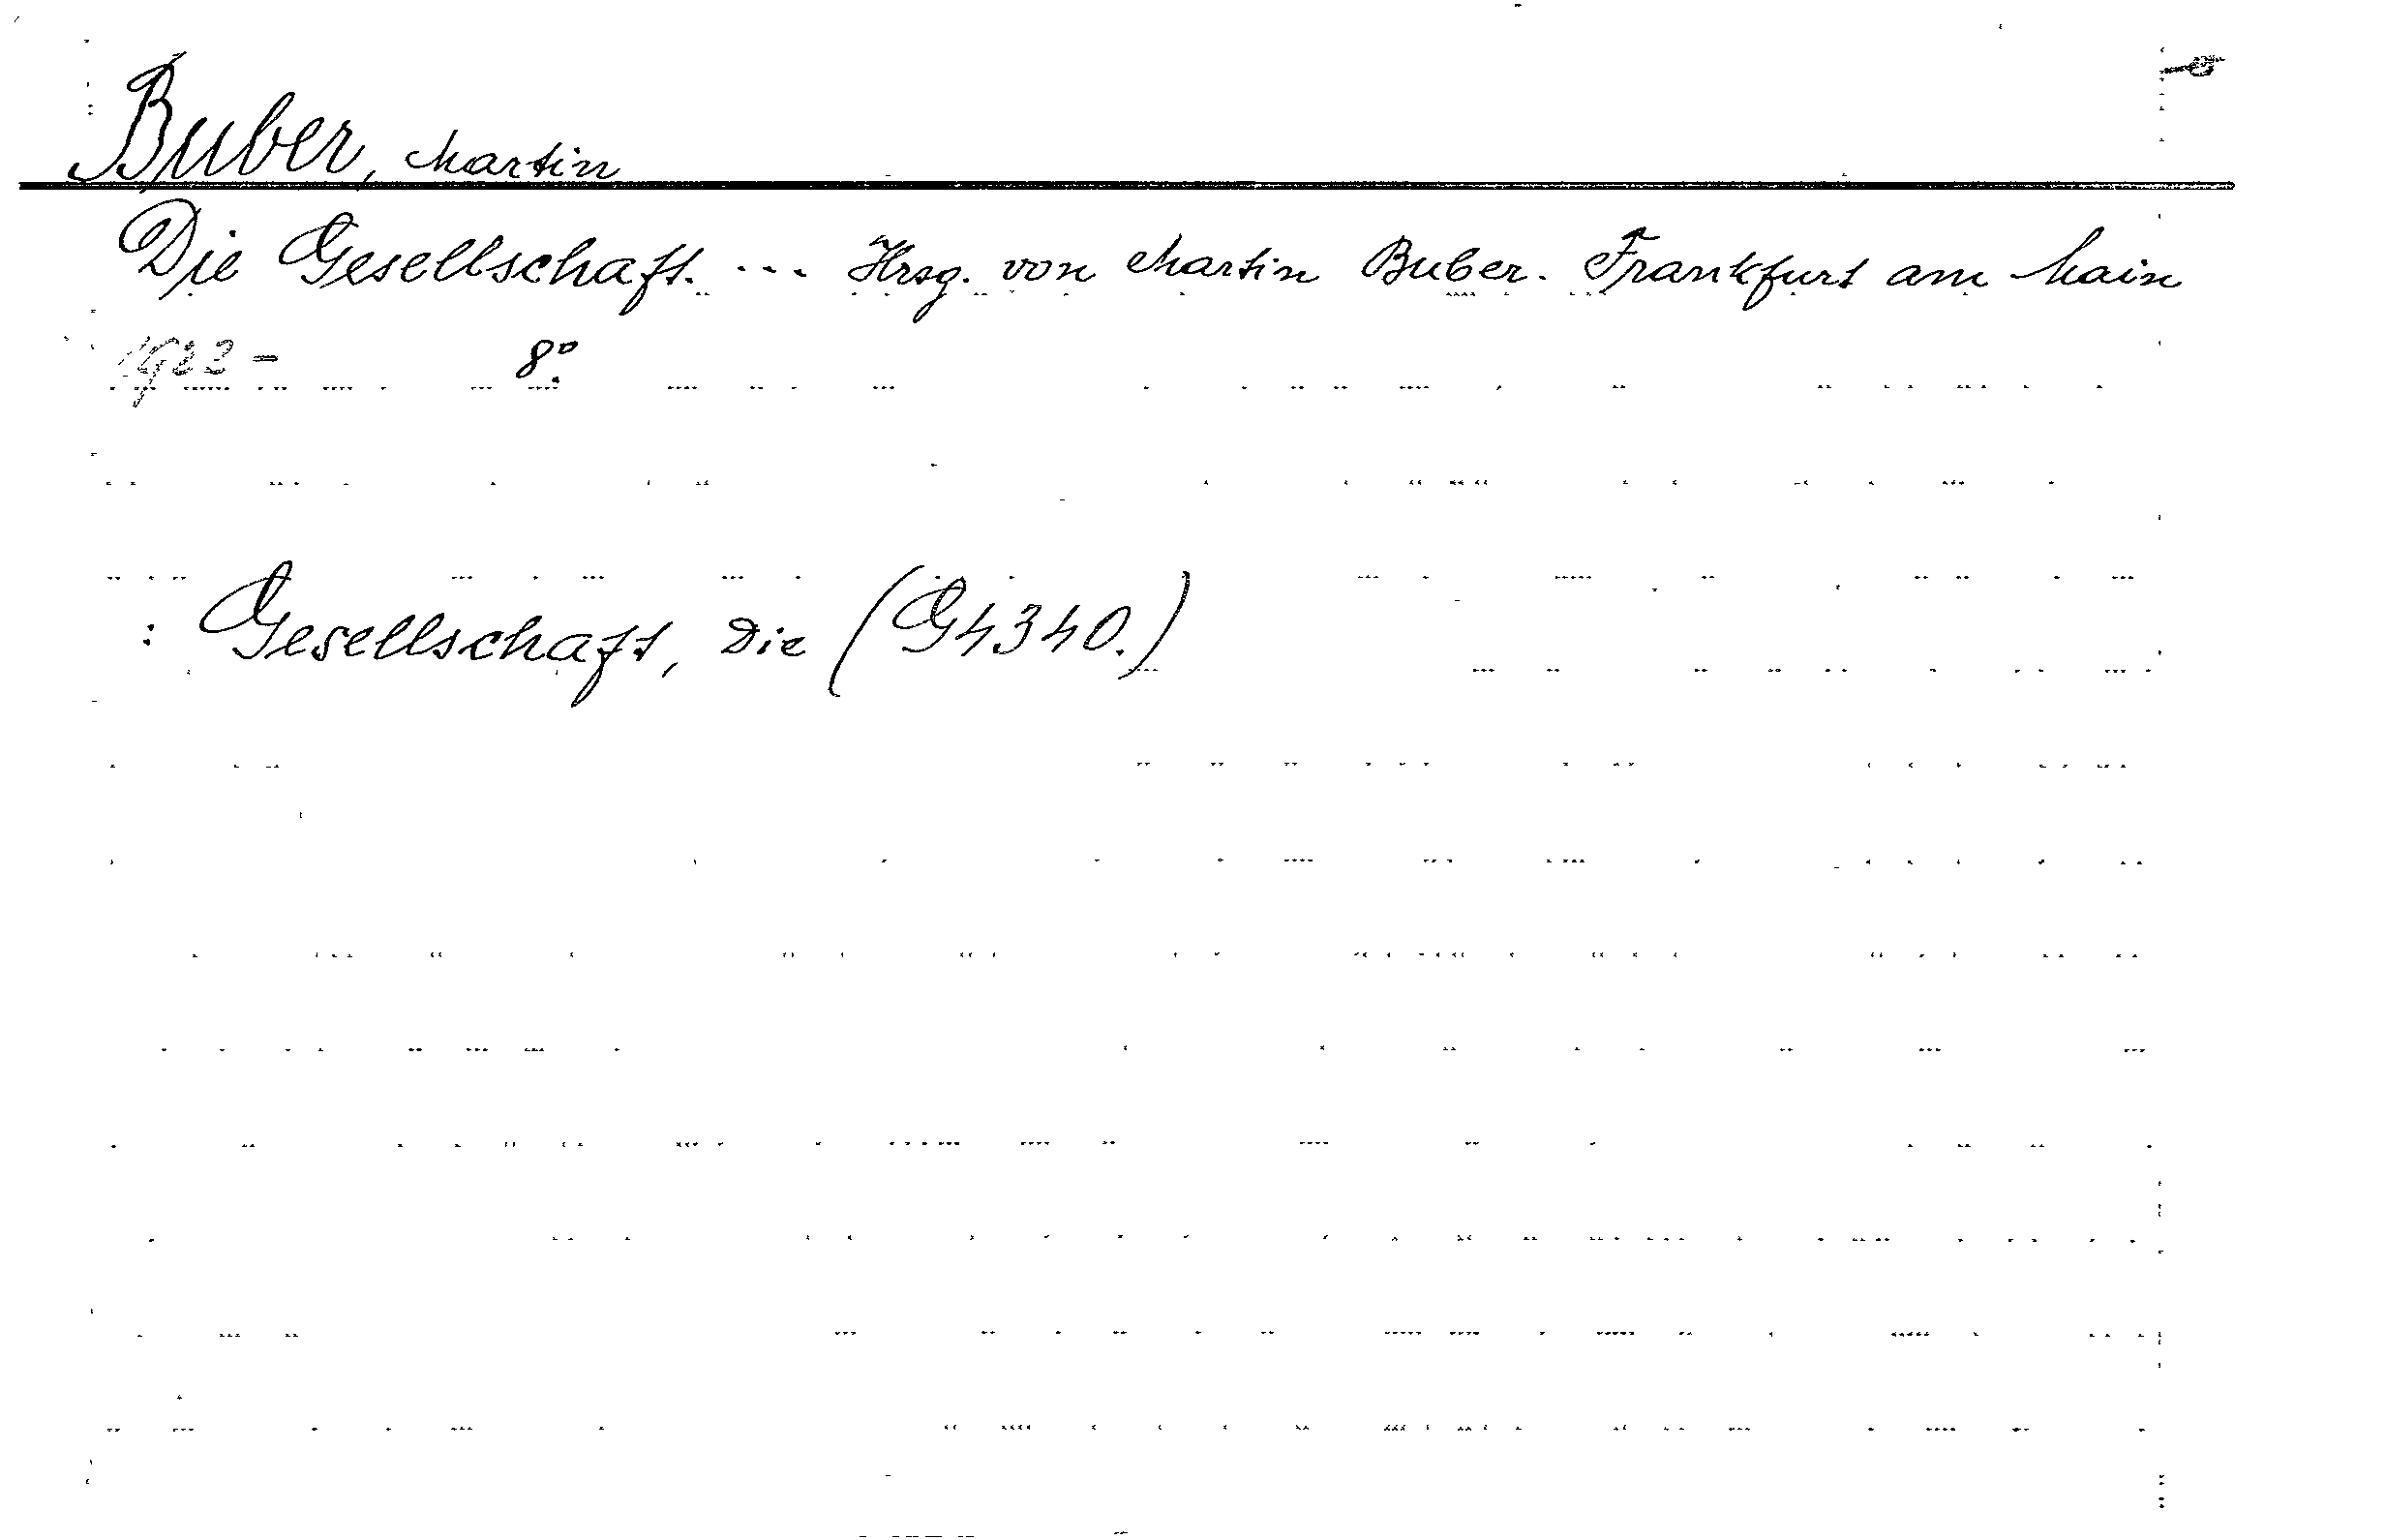 Buber, Martin
Die Gesellschaft. ... Hrsg. von Martin Buber. Frankfurt am Main
8°.
: Gesellschaft, Die (G4340.)